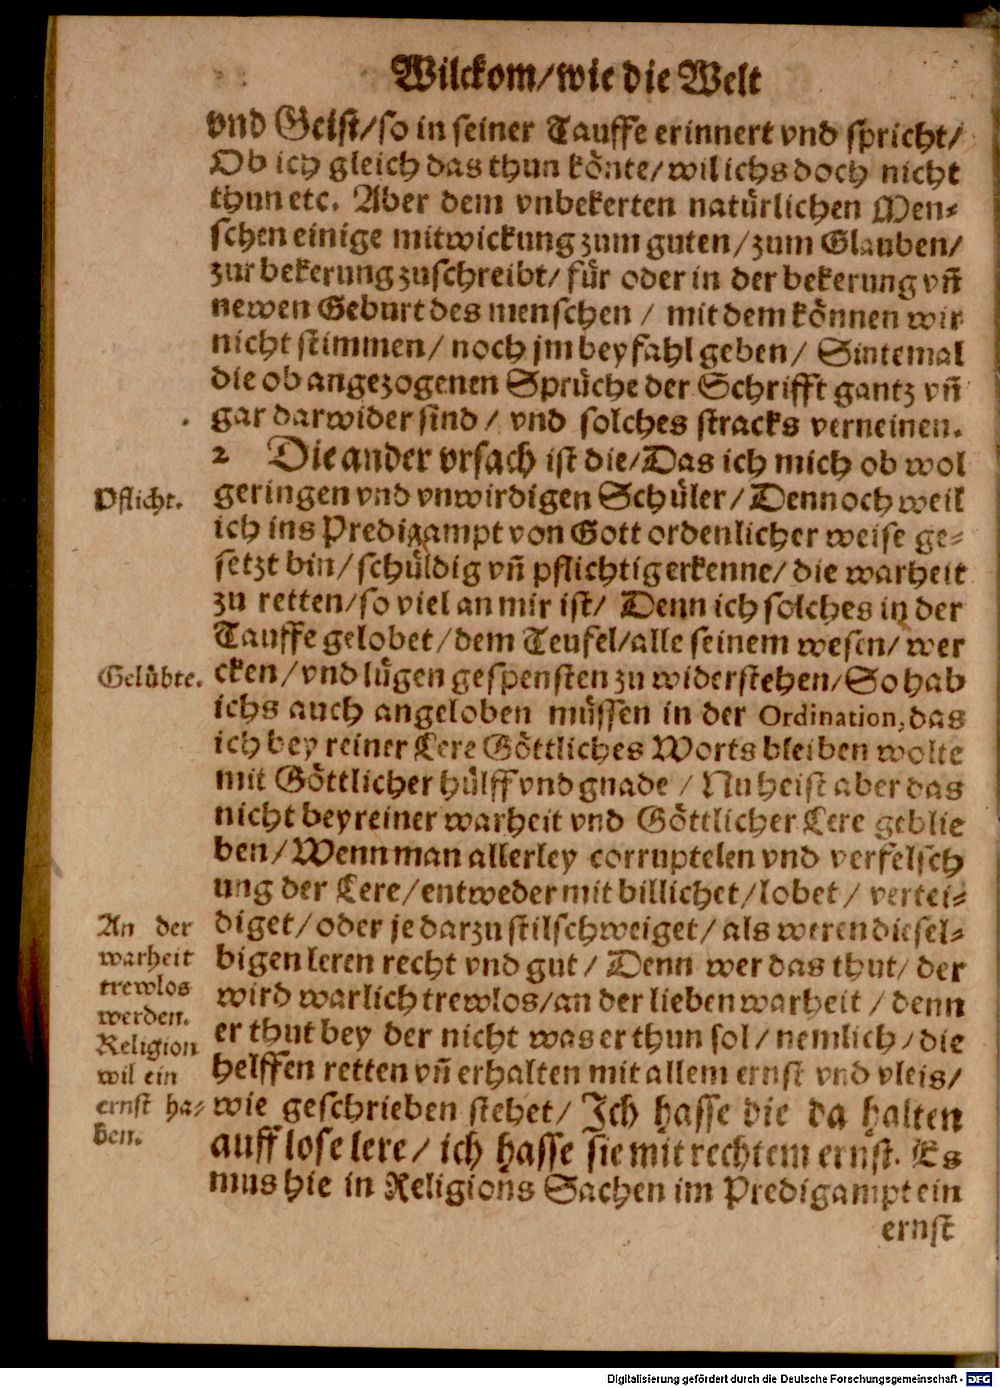 Wilckom/wie die Welt
vnd Geist/so in seiner Tauffe erinnert vnd spricht/
Ob ich gleich das thun koͤnte/wil ichs doch nicht
thun etc. Aber dem vnbekerten natuͤrlichen Men-
schen einige mitwickung zum guten/zum Glauben/
zur bekerung zuschreibt/fuͤr oder in der bekerung vñ
newen Geburt des menschen / mit dem koͤnnen wir
nicht stimmen/ noch jm beyfahl geben/ Sintemal
die ob angezogenen Spruͤche der Schrifft gantz vñ
gar darwider sind/ vnd solches stracks verneinen.
2 Die ander vrsach ist die/Das ich mich ob wol
Pflicht.
geringen vnd vnwirdigen Schuͤler/Dennoch weil
ich ins Predigampt von Gott ordenlicher weise ge-
setzt bin/schuͤldig vñ pflichtig erkenne/die warheit
zu retten/so viel an mir ist/ Denn ich solches in der
Tauffe gelobet/dem Teufel/alle seinem wesen/wer
Geluͤbte.
cken/vnd luͤgen gespensten zu widerstehen/So hab
ichs auch angeloben muͤssen in der Ordination, das
ich bey reiner Lere Goͤttliches Worts bleiben wolte
mit Goͤttlicher huͤlff vnd gnade / Nu heist aber das
nicht bey reiner warheit vnd Goͤttlicher Lere geblie
ben/Wenn man allerley corruptelen vnd verfelsch
ung der Lere/entweder mit billichet/lobet/ vertei-
An der
warheit
trewlos
werden.
diget/oder je darzu stilschweiget/als weren diesel-
bigen leren recht vnd gut/ Denn wer das thut/der
wird warlich trewlos/an der lieben warheit /denn
er thut bey der nicht was er thun sol/nemlich/die
Religion
wil ein
ernst ha-
ben.
helffen retten vñ erhalten mit allem ernst vnd vleis/
wie geschrieben stehet/ Ich hasse die da halten
auff lose lere/ ich hasse sie mit rechtem ernst. Es
mus hie in Religions Sachen im Predigampt ein
ernst
Digitalisierung gefördert durch die Deutsche Forschungsgemeinschaft - DFG